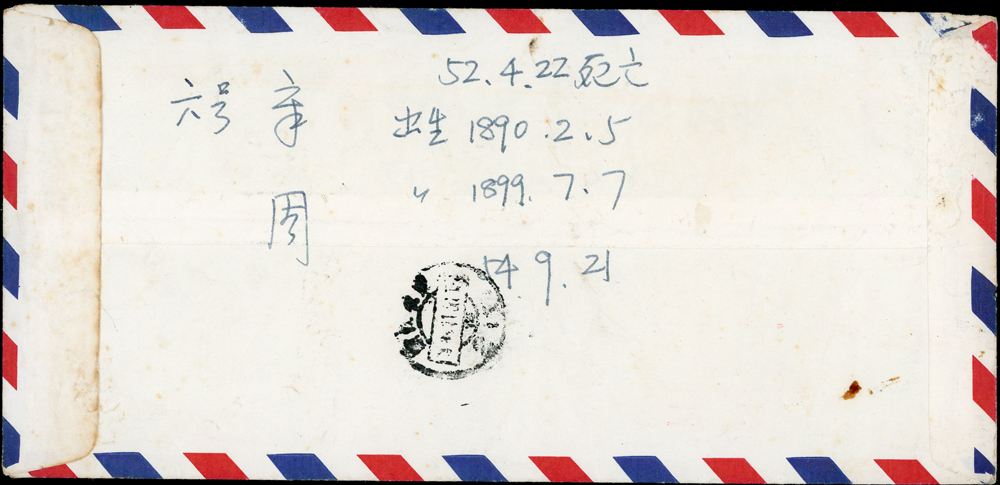 52.4.22 死亡
六号 辛 出生 1890.2.5
周 〃 1899.7.7
54.9.21